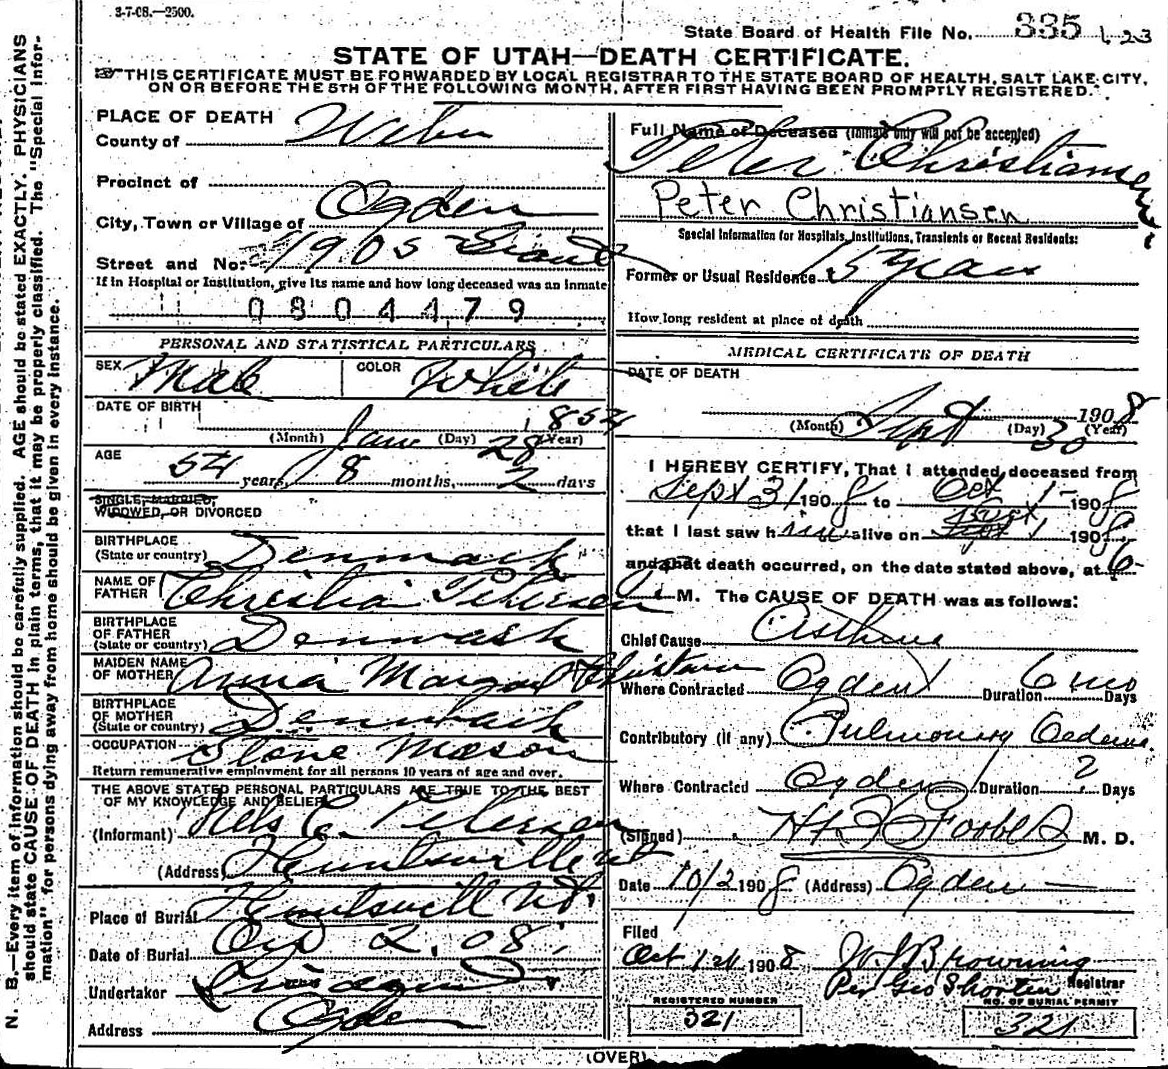 3-7-08.—2500.
State Board of Health File No. 335
STATE OF UTAH—DEATH CERTIFICATE.
THIS CERTIFICATE MUST BE FORWARDED BY LOCAL REGISTRAR TO THE STATE BOARD OF HEALTH, SALT LAKE CITY,
ON OR BEFORE THE 5TH OF THE FOLLOWING MONTH, AFTER FIRST HAVING BEEN PROMPTLY REGISTERED.
N. B.—Every item of information should be carefully supplied. AGE should be stated EXACTLY. PHYSICIANS
should state CAUSE OF DEATH in plain terms, that it may be properly classified. The "Special Infor-
mation" for persons dying away from home should be given in every instance.
PLACE OF DEATH
County of Weber
Precinct of
City, Town or Village of Ogden
Street and No. 1905 Grant
If in Hospital or Institution, give its name and how long deceased was an inmate
0804479
PERSONAL AND STATISTICAL PARTICULARS
SEX Male COLOR White
DATE OF BIRTH
(Month) Jan (Day) 28 1854 (Year)
AGE
54 years, 8 months, 2 days
SINGLE, MARRIED,
WIDOWED, OR DIVORCED
BIRTHPLACE
(State or country) Denmark
NAME OF
FATHER Christian Petersen
BIRTHPLACE
OF FATHER
(State or country) Denmark
MAIDEN NAME
OF MOTHER Anna Margaret
BIRTHPLACE
OF MOTHER
(State or country) Denmark
OCCUPATION Stone Mason
Return remunerative employment for all persons 10 years of age and over.
THE ABOVE STATED PERSONAL PARTICULARS ARE TRUE TO THE BEST
OF MY KNOWLEDGE AND BELIEF
(Informant) Nels C. Petersen
(Address) Huntsville Ut
Place of Burial Huntsvill Ut.
Date of Burial Oct 2. 08
Undertaker
Address Ogden
Full Name of Deceased (Initials only will not be accepted)
Peter Christiansen
Peter Christiansen
Special Information for Hospitals, Institutions, Transients or Recent Residents:
Former or Usual Residence 15 years
How long resident at place of death
MEDICAL CERTIFICATE OF DEATH
DATE OF DEATH
(Month) Sept (Day) 30 1908 (Year)
I HEREBY CERTIFY, That I attended deceased from
Sept 31 1908 to Oct 1 1908
that I last saw him alive on Sept 1 1908
and that death occurred, on the date stated above, at 6
M. The CAUSE OF DEATH was as follows:
Chief Cause Asthma
Where Contracted Ogden Duration 6 mo Days
Contributory (if any) Pulmonary Oedema
Where Contracted Ogden Duration 2 Days
(Signed) M. D.
Date 10/2 1908 (Address) Ogden
Filed
Oct 1908 W J Browning
Registrar
Per Geo Shorten
REGISTERED NUMBER
321
NO. OF BURIAL PERMIT
321
(OVER)